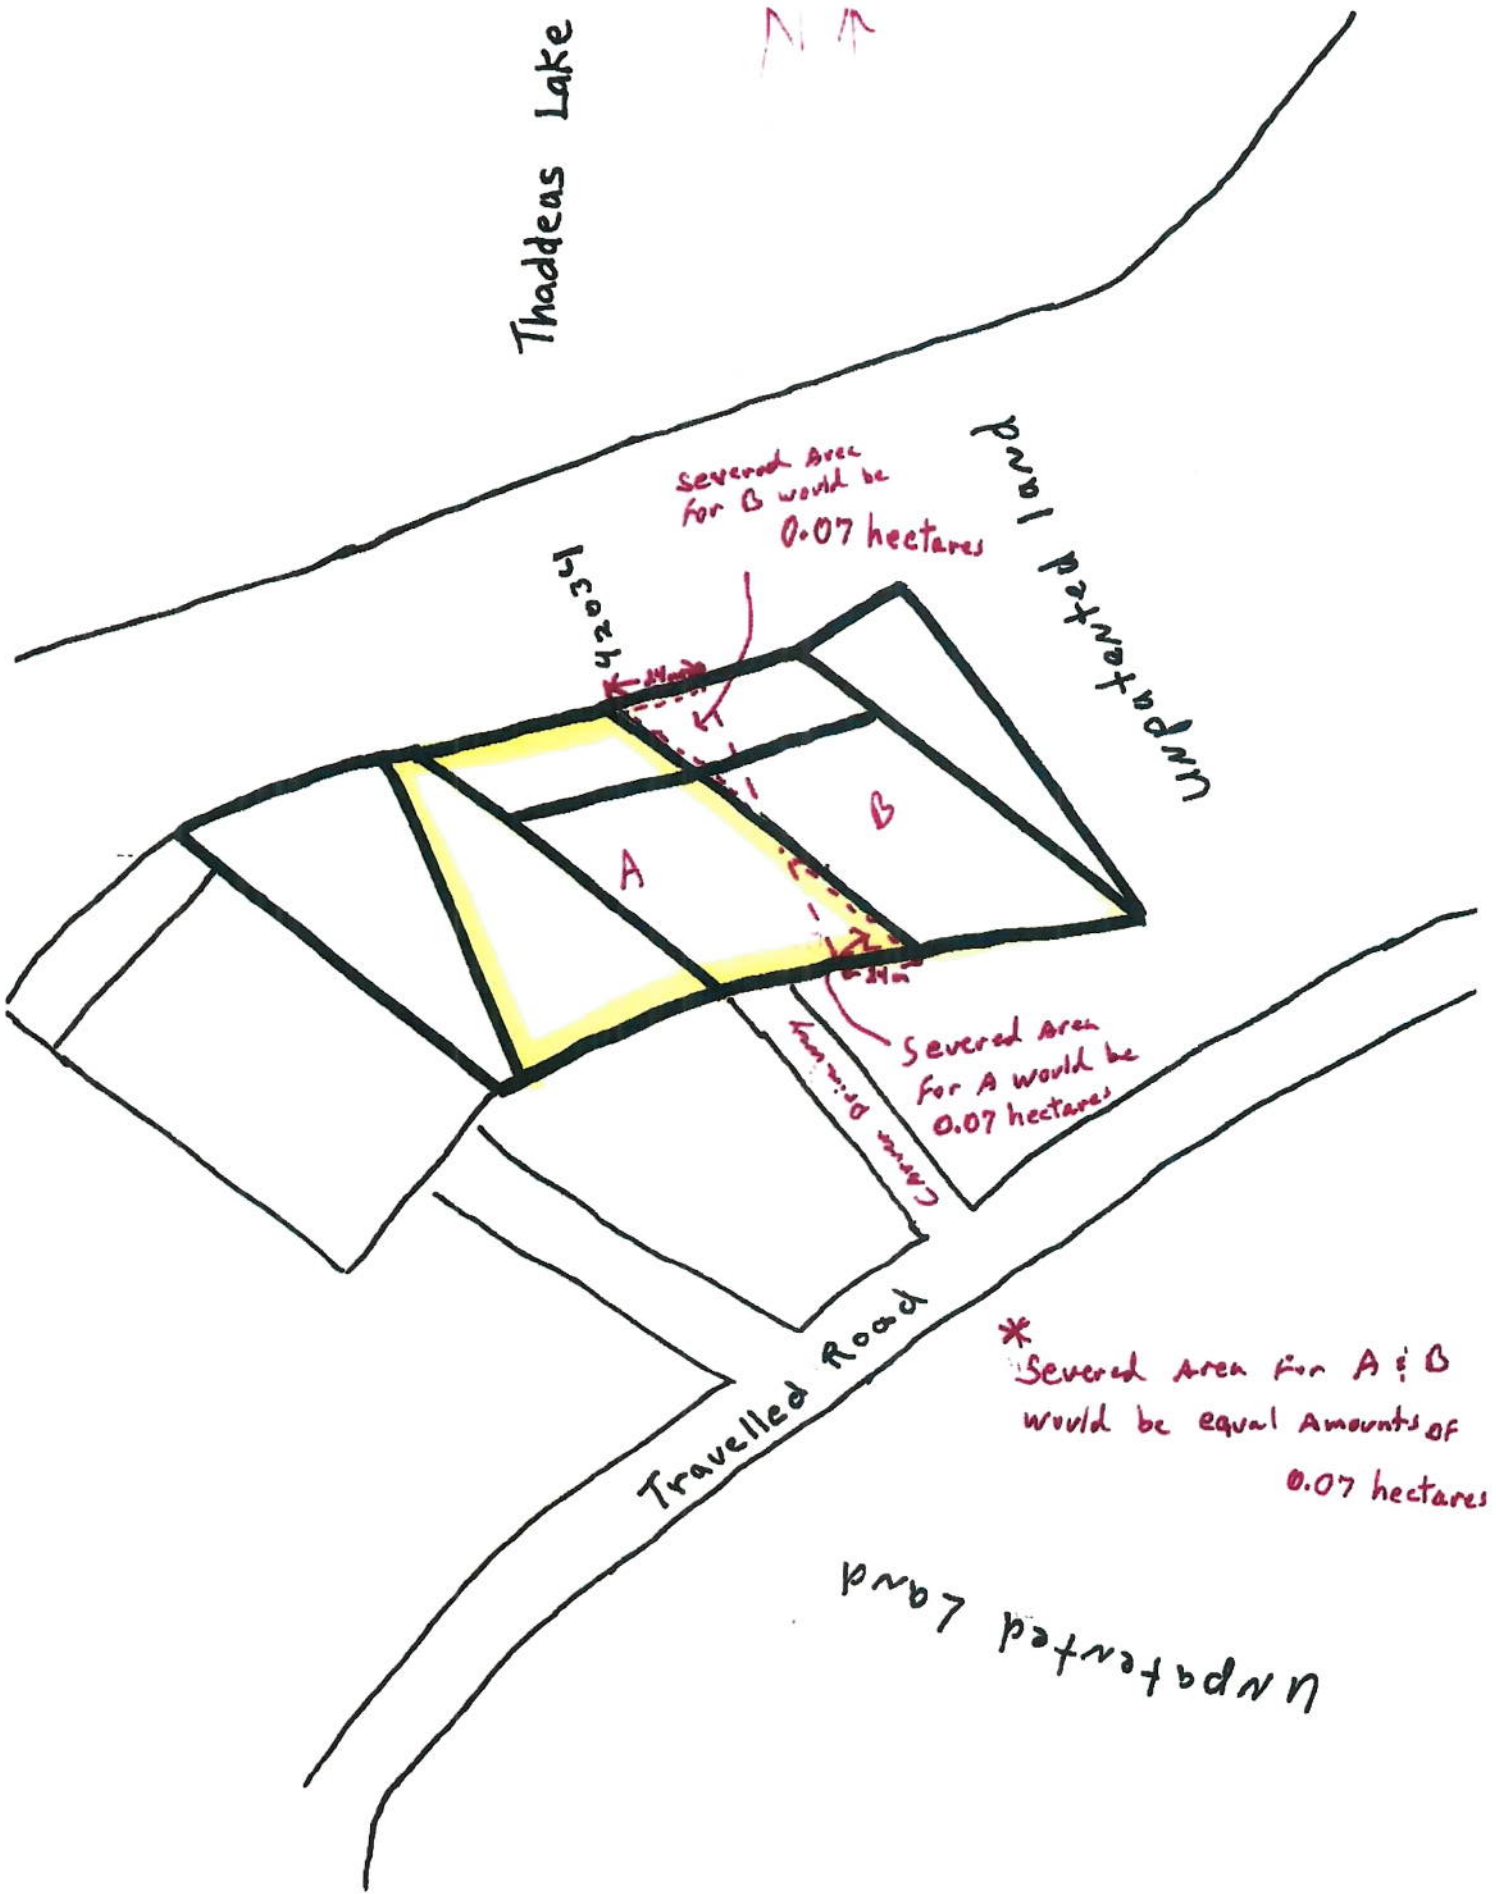 N
Thaddeus Lake
Severed Area
for B would be
0.07 hectares
Unpatented land
420341
24m
B
A
24m
Severed Area
for A would be
0.07 hectares
Common Driveway
Travelled Road
*
Severed Area for A & B
would be equal Amounts of
0.07 hectares
Unpatented Land